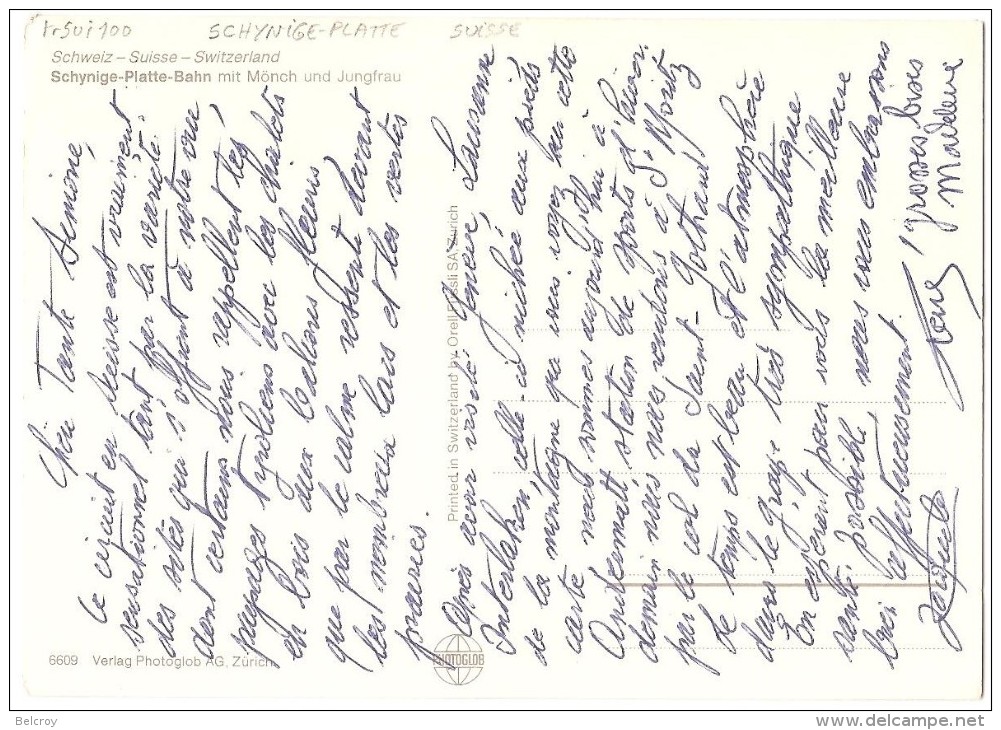 SCHYNIGE-PLATTE SUISSE
Schweiz – Suisse – Switzerland
Schynige-Platte-Bahn mit Mönch und Jungfrau
Chère Tante Simone,
Ce circuit en Suisse est vraiment
sensationnel tant par la variété
des sites qui s'offrent à notre vue,
dont certains nous rappellent les
paysages tyroliens avec les chalets
en bois aux balcons fleuris
que par le calme restant devant
les nombreux lacs et les vertes
prairies.
Après avoir visité Genève, Lausanne
Interlaken, celle-ci nichée aux pieds
de la montagne que vous voyez sur cette
carte nous sommes aujourd'hui à
Andermatt station de sports d'hiver.
demain nous nous rendons à St Moritz
par le col du Saint-Gothard,
Le temps est beau et l'atmosphère
dans le groupe très sympathique
En espérant pour vous la meilleure
santé possible, nous vous embrassons
bien affectueusement.
grosses bises
Printed in Switzerland by Orell Füssli SA, Zürich
PHOTOGLOB
6609 Verlag Photoglob AG, Zürich
Belcroy
www.delcampe.net